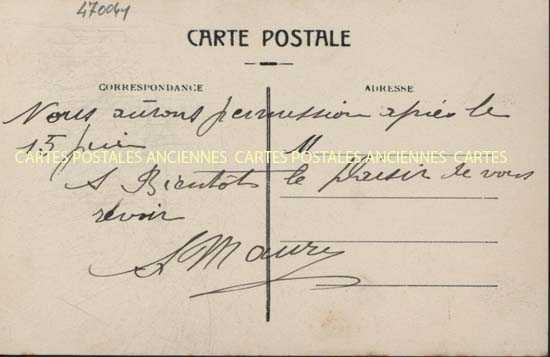 470041
CARTE POSTALE
CORRESPONDANCE
ADRESSE
Nous aurons permission après le
15 juin
M
CARTES POSTALES ANCIENNES CARTES POSTALES ANCIENNES CARTES
A Bientôt le Plaisir de vous
revoir
A Maury